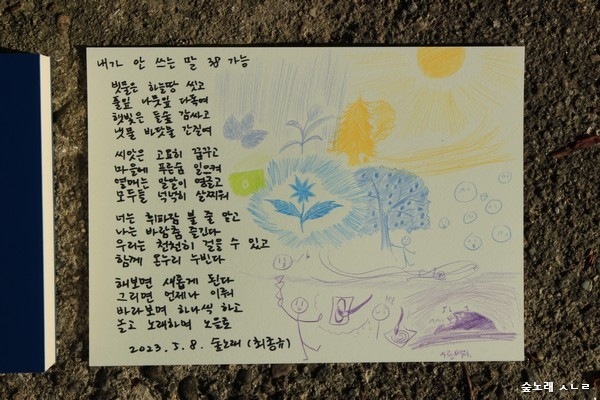 내가 안 쓰는 말 38 가능
빗물은 하늘땅 씻고
풀잎 나뭇잎 다독여
햇빛은 들숲 감싸고
냇물 바닷물 간질여
씨앗은 고요히 꿈꾸고
마을에 푸른숨 일으켜
열매는 알알이 영글고
모두들 넉넉히 살찌워
너는 휘파람 불 줄 알고
나는 바람춤 즐긴다
우리는 천천히 걸을 수 있고
함께 온누리 누빈다
해보면 새롭게 된다
그리면 언제나 이뤄
바라보며 하나씩 하고
놀고 노래하며 노을로
2023. 5. 8. 숲노래 (최종규)
숲노래 ㅅㄴㄹ